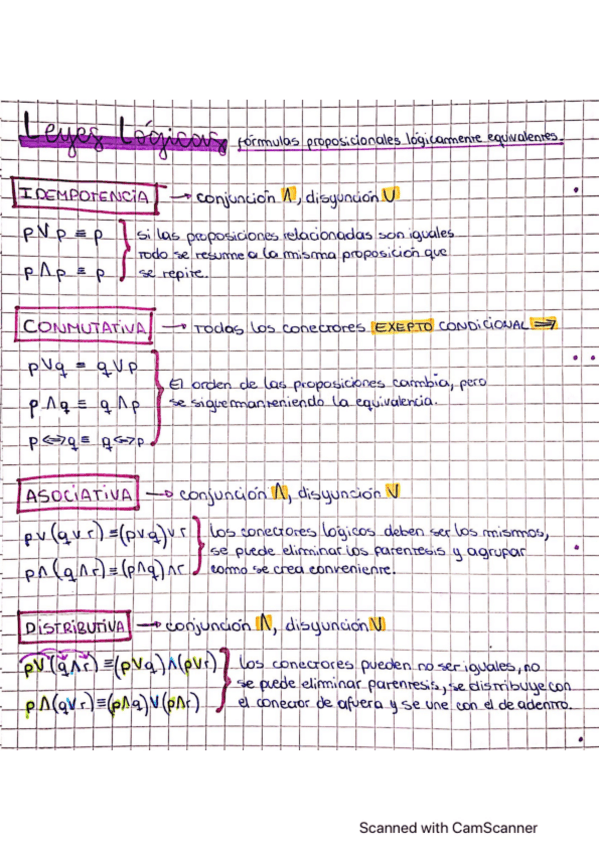 Leyes Lógicas fórmulas proposicionales lógicamente equivalentes.
IDEMPOTENCiA → conjunción Λ, disyunción V
p V p ≡ p
p Λ p ≡ p
si las proposiciones relacionadas son iguales
todo se resume a la misma proposición que
se repite.
CONMUTATiVA → Todas los conectores EXEPTO CONDICIONAL ⇒
p V q ≡ q V p
p Λ q ≡ q Λ p
p ⇔ q ≡ q ⇔ p
El orden de las proposiciones cambia, pero
se sigue manteniendo la equivalencia.
ASOCiATiVA → conjunción Λ, disyunción V
p v (q v r) ≡ (p v q) v r
p Λ (q Λ r) ≡ (p Λ q) Λ r
Los conectores lógicos deben ser los mismos,
se puede eliminar los parentesis y agrupar
como se crea conveniente.
DiSTRiBUTiVA → conjunción Λ, disyunción V
p V (q Λ r) ≡ (p V q) Λ (p V r)
p Λ (q V r) ≡ (p Λ q) V (p Λ r)
Los conectores pueden no ser iguales, no
se puede eliminar parentesis, se distribuye con
el conector de afuera y se une con el de adentro.
Scanned with CamScanner